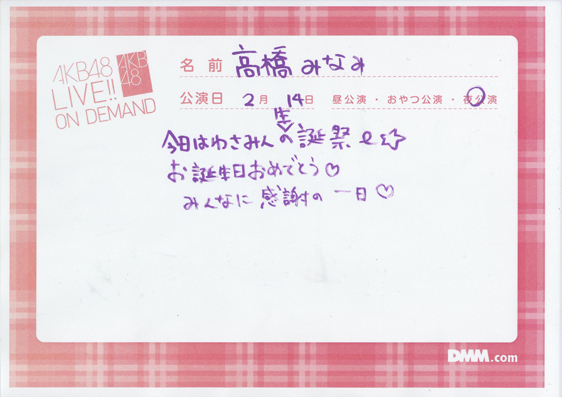 AKB48
LIVE!!
ON DEMAND
AKB
48
名前 高橋みなみ
公演日 2月14日 昼公演・おやつ公演・夜公演
生
今日はわさみんの誕祭
お誕生日おめでとう♡
みんなに感謝の一日♡
DMM.com